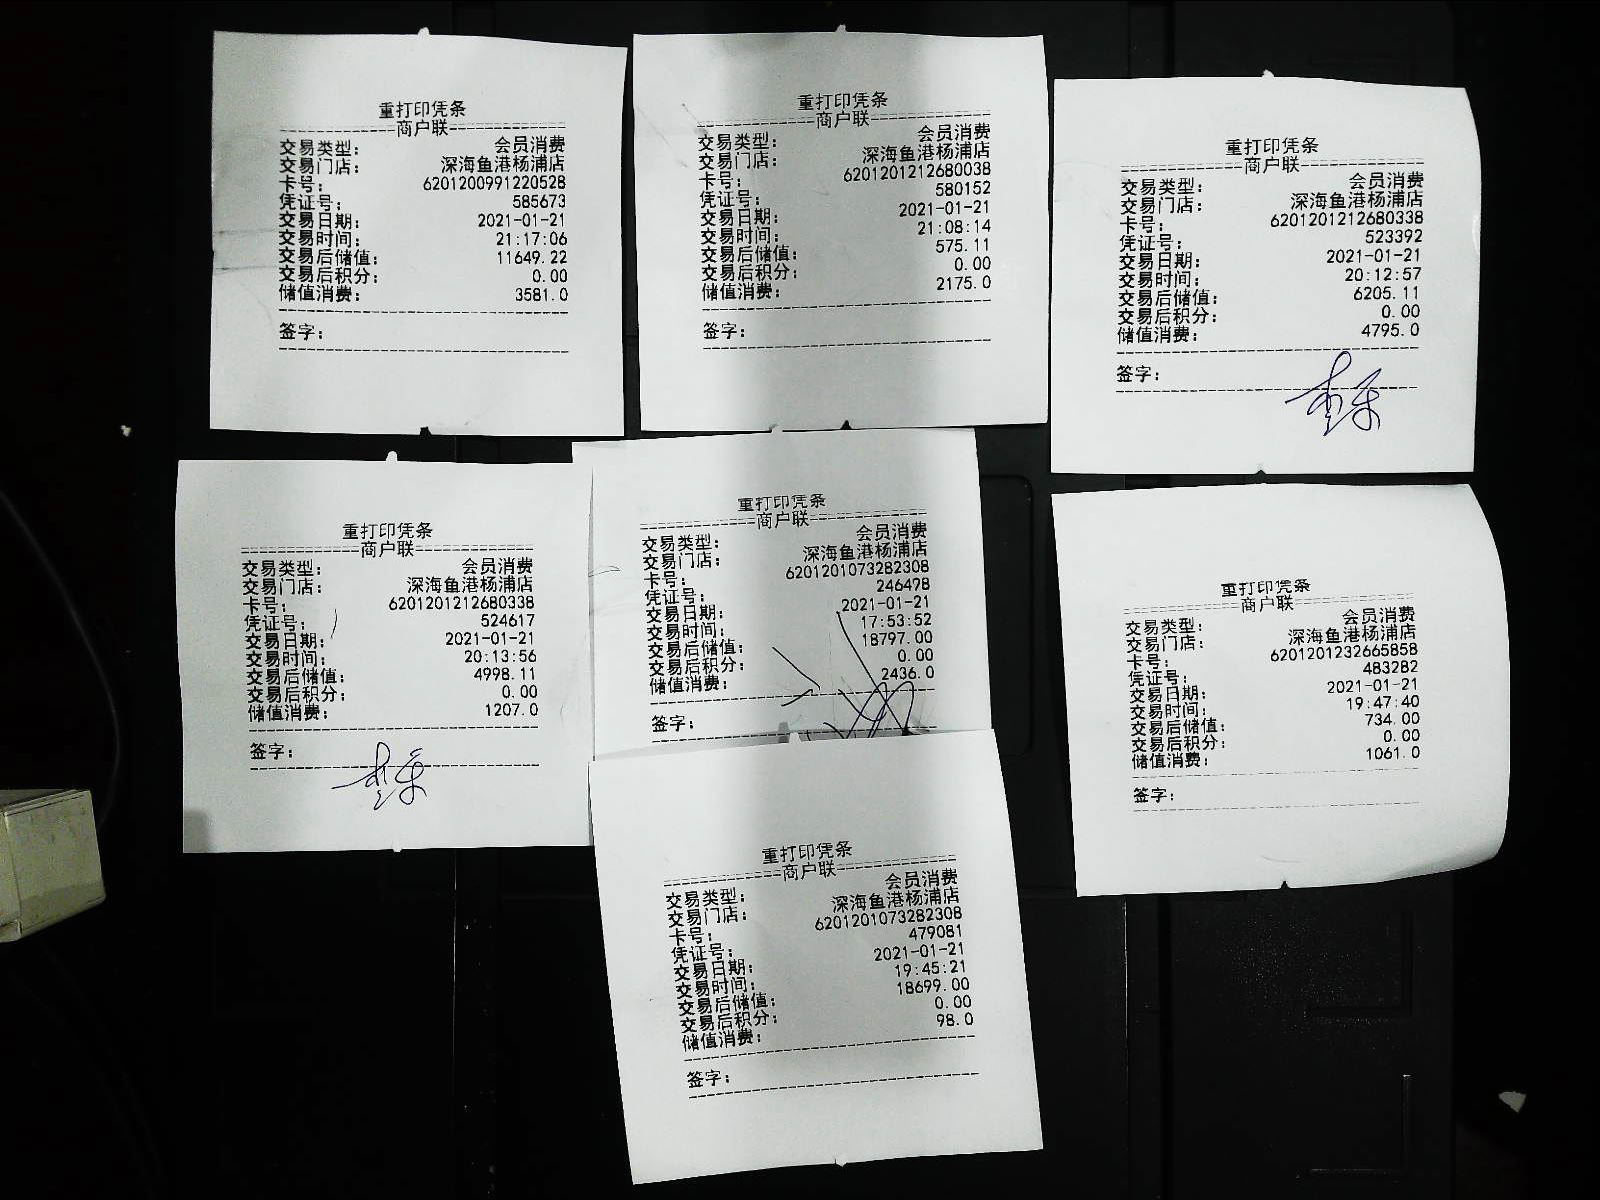 重打印凭条
商户联
交易类型: 会员消费
交易门店: 深海鱼港杨浦店
卡号: 6201200991220528
凭证号: 585673
交易日期: 2021-01-21
交易时间: 21:17:06
交易后储值: 11649.22
交易后积分: 0.00
储值消费: 3581.0
签字:
重打印凭条
商户联
交易类型: 会员消费
交易门店: 深海鱼港杨浦店
卡号: 6201201212680038
凭证号: 580152
交易日期: 2021-01-21
交易时间: 21:08:14
交易后储值: 575.11
交易后积分: 0.00
储值消费: 2175.0
签字:
重打印凭条
商户联
交易类型: 会员消费
交易门店: 深海鱼港杨浦店
卡号: 6201201212680338
凭证号: 523392
交易日期: 2021-01-21
交易时间: 20:12:57
交易后储值: 6205.11
交易后积分: 0.00
储值消费: 4795.0
签字:
重打印凭条
商户联
交易类型: 会员消费
交易门店: 深海鱼港杨浦店
卡号: 6201201212680338
凭证号: 524617
交易日期: 2021-01-21
交易时间: 20:13:56
交易后储值: 4998.11
交易后积分: 0.00
储值消费: 1207.0
签字:
重打印凭条
商户联
交易类型: 会员消费
交易门店: 深海鱼港杨浦店
卡号: 6201201073282308
凭证号: 246498
交易日期: 2021-01-21
交易时间: 17:53:52
交易后储值: 18797.00
交易后积分: 0.00
储值消费: 2436.0
签字:
重打印凭条
商户联
交易类型: 会员消费
交易门店: 深海鱼港杨浦店
卡号: 6201201232665858
凭证号: 483282
交易日期: 2021-01-21
交易时间: 19:47:40
交易后储值: 734.00
交易后积分: 0.00
储值消费: 1061.0
签字:
重打印凭条
商户联
交易类型: 会员消费
交易门店: 深海鱼港杨浦店
卡号: 6201201073282308
凭证号: 479081
交易日期: 2021-01-21
交易时间: 19:45:21
交易后储值: 18699.00
交易后积分: 0.00
储值消费: 98.0
签字: